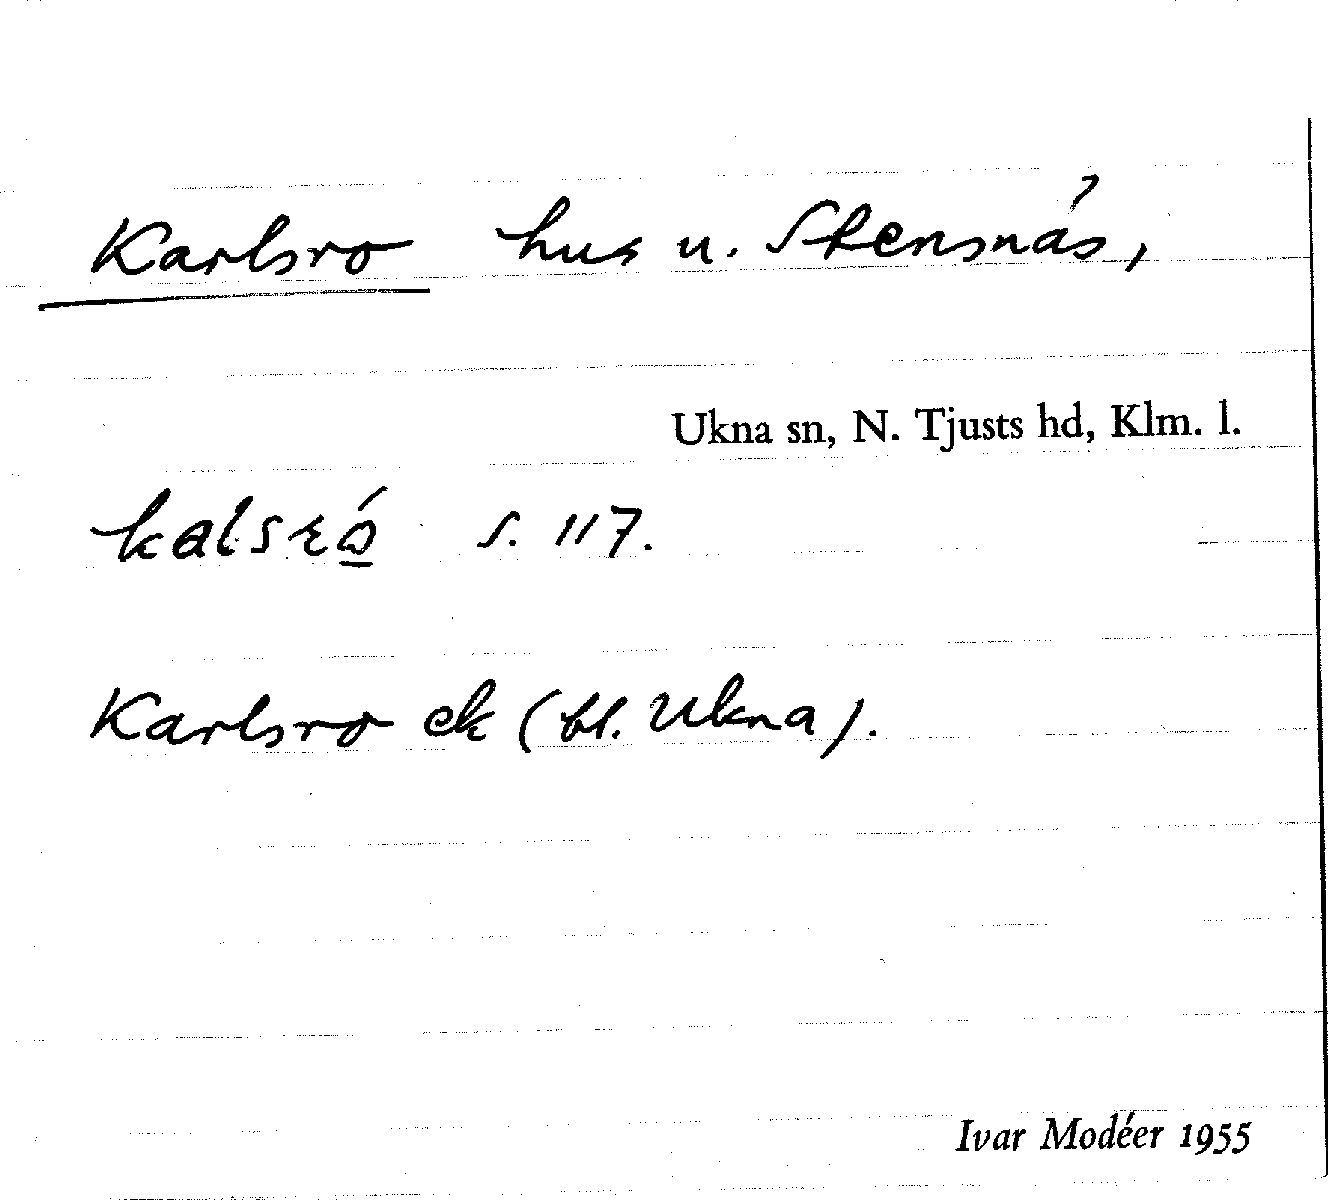 Karlsro hus u. Stensnäs,
Ukna sn, N. Tjusts hd, Klm. l.
s. 117.
Karlsro ek (bl. Ukna).
Ivar Modéer 1955